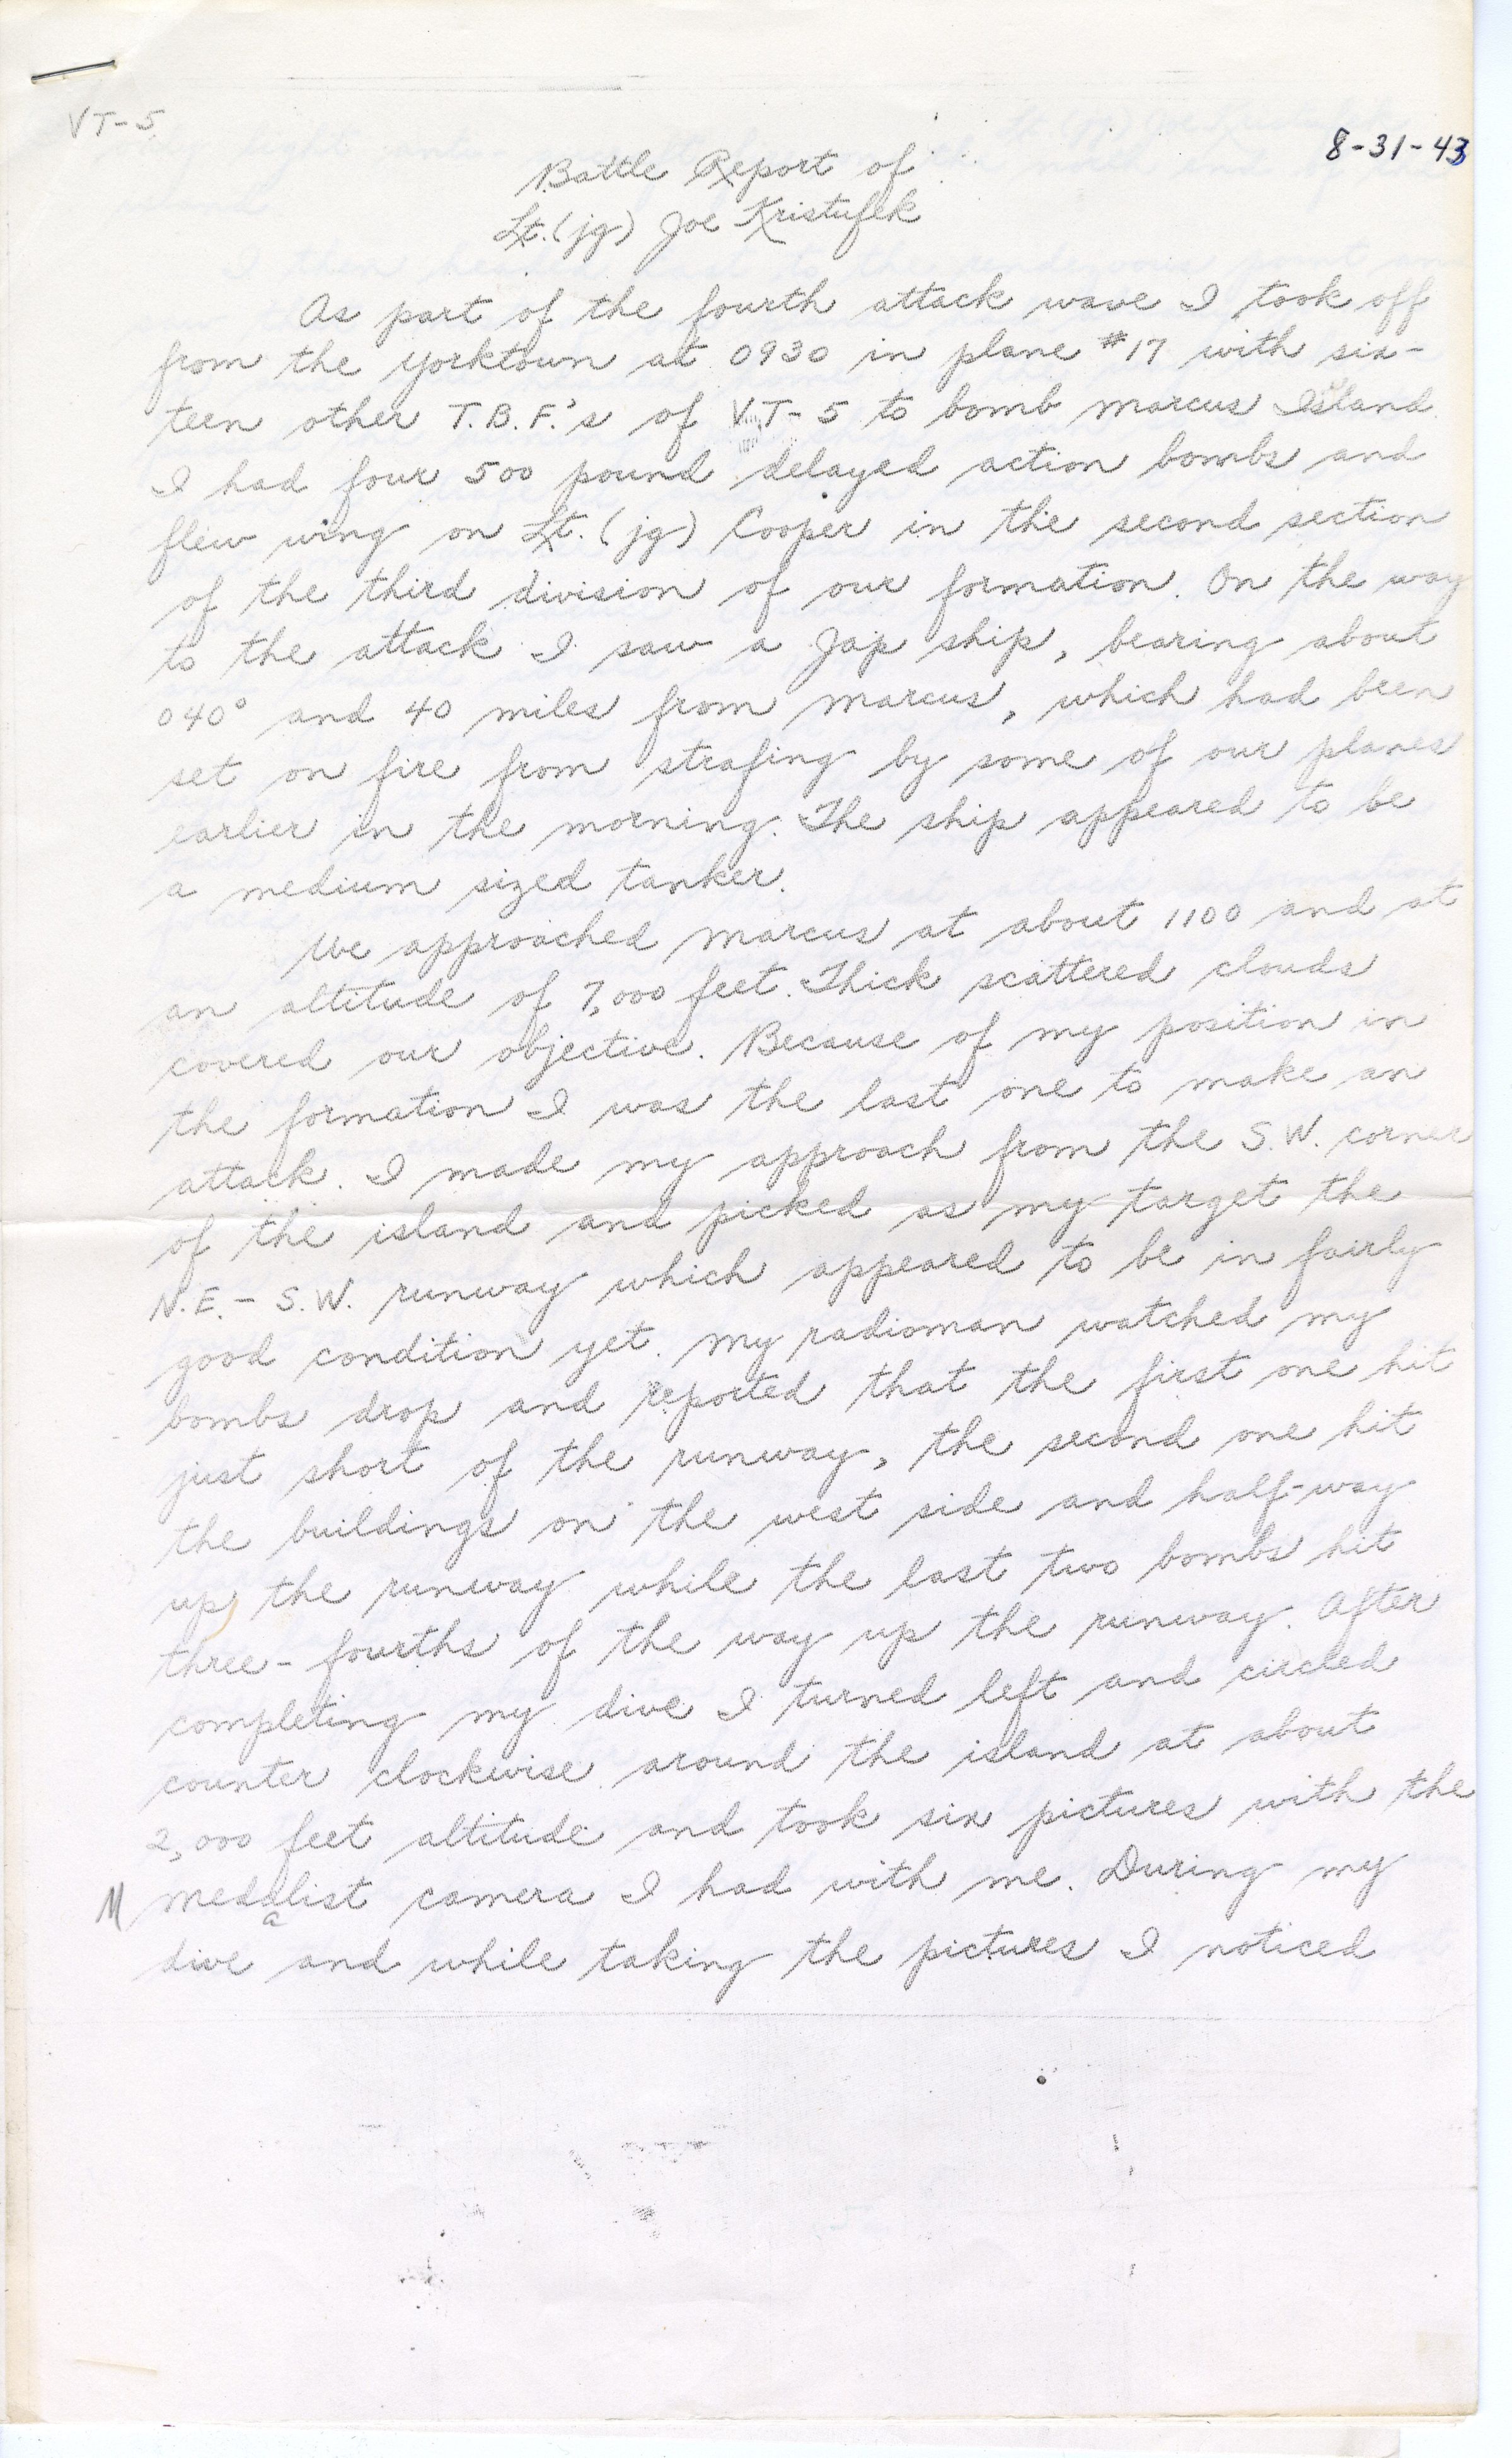 VT-5
8-31-43
Battle Report of
Lt. (jg) Joe Kristufek
As part of the fourth attack wave I took off
from the Yorktown at 0930 in plane #17 with six-
teen other T.B.F.'s of VT-5 to bomb Marcus Island.
I had four 500 pound delayed action bombs and
flew wing on Lt. (jg) Cooper in the second section
of the third division of our formation. On the way
to the attack I saw a Jap ship, bearing about
040° and 40 miles from Marcus, which had been
set on fire from strafing by some of our planes
earlier in the morning. The ship appeared to be
a medium sized tanker.
We approached Marcus at about 1100 and at
an altitude of 7,000 feet. Thick scattered clouds
covered our objective. Because of my position in
the formation I was the last one to make an
attack. I made my approach from the S.W. corner
of the island and picked as my target the
N.E. - S.W. runway which appeared to be in fairly
good condition yet. My radioman watched my
bombs drop and reported that the first one hit
just short of the runway, the second one hit
the buildings on the west side and half-way
up the runway while the last two bombs hit
three-fourths of the way up the runway. After
completing my dive I turned left and circled
counter clockwise around the island at about
2,000 feet altitude and took six pictures with the
M medalist camera I had with me. During my
a
dive and while taking the pictures I noticed